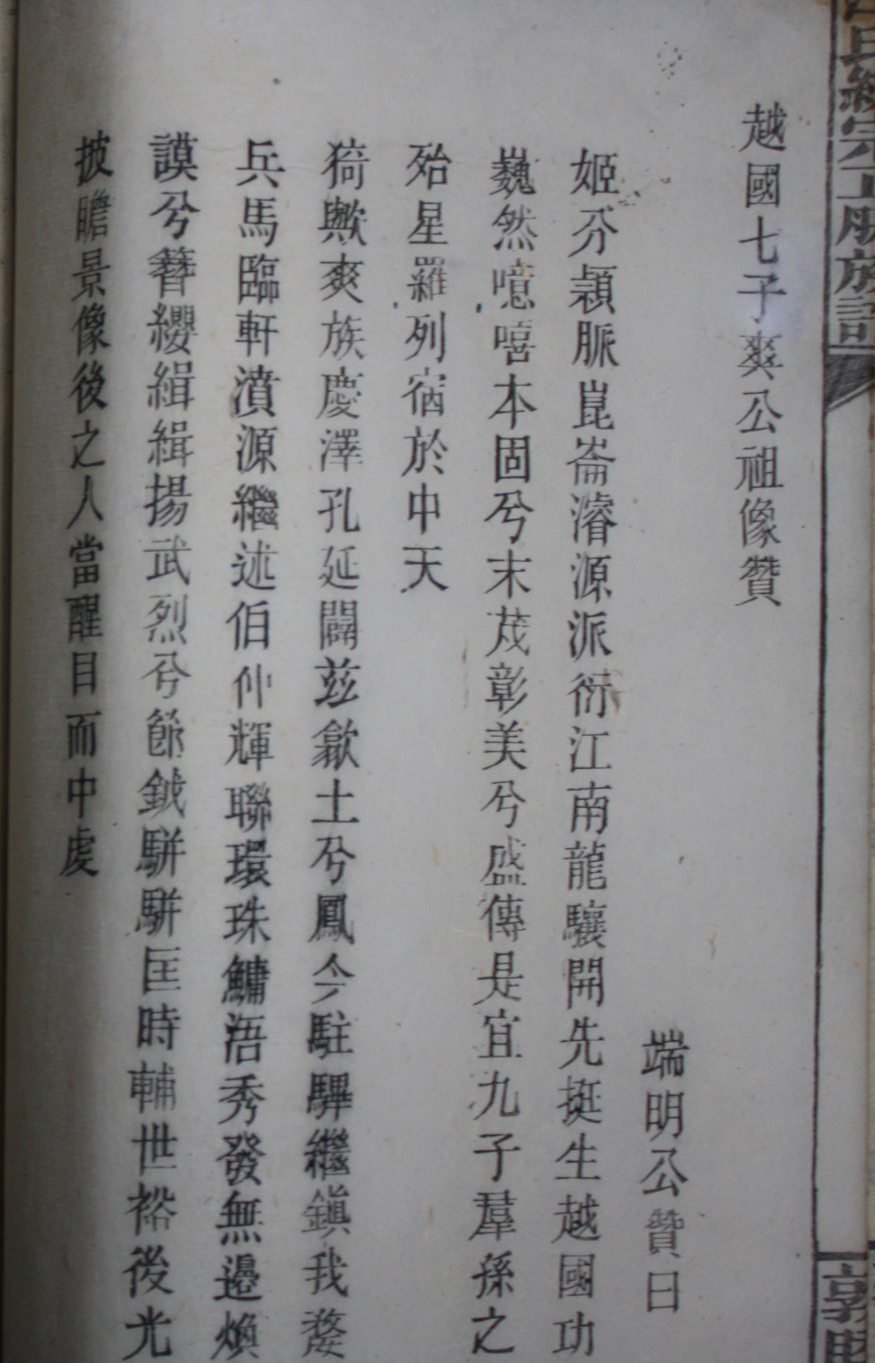 汪氏統宗正脈族譜
敦睦
越國七子爽公祖像贊
端明公贊曰
姬分穎脈崑崙濬源派衍江南龍驤開先挺生越國功
巍然噫嘻本固兮末茂彰美兮盛傳是宜九子羣孫之
殆星羅列宿於中天
猗歟爽族慶澤孔延闢兹歙土兮鳳今駐驆繼鎮我婺
兵馬臨軒濆源繼述伯仲輝聯環珠鱅浯秀發無邊煥
謨兮簪纓緝緝揚武烈兮節鉞駢駢匡時輔世裕後光
披瞻景像後之人當醒目而中虔